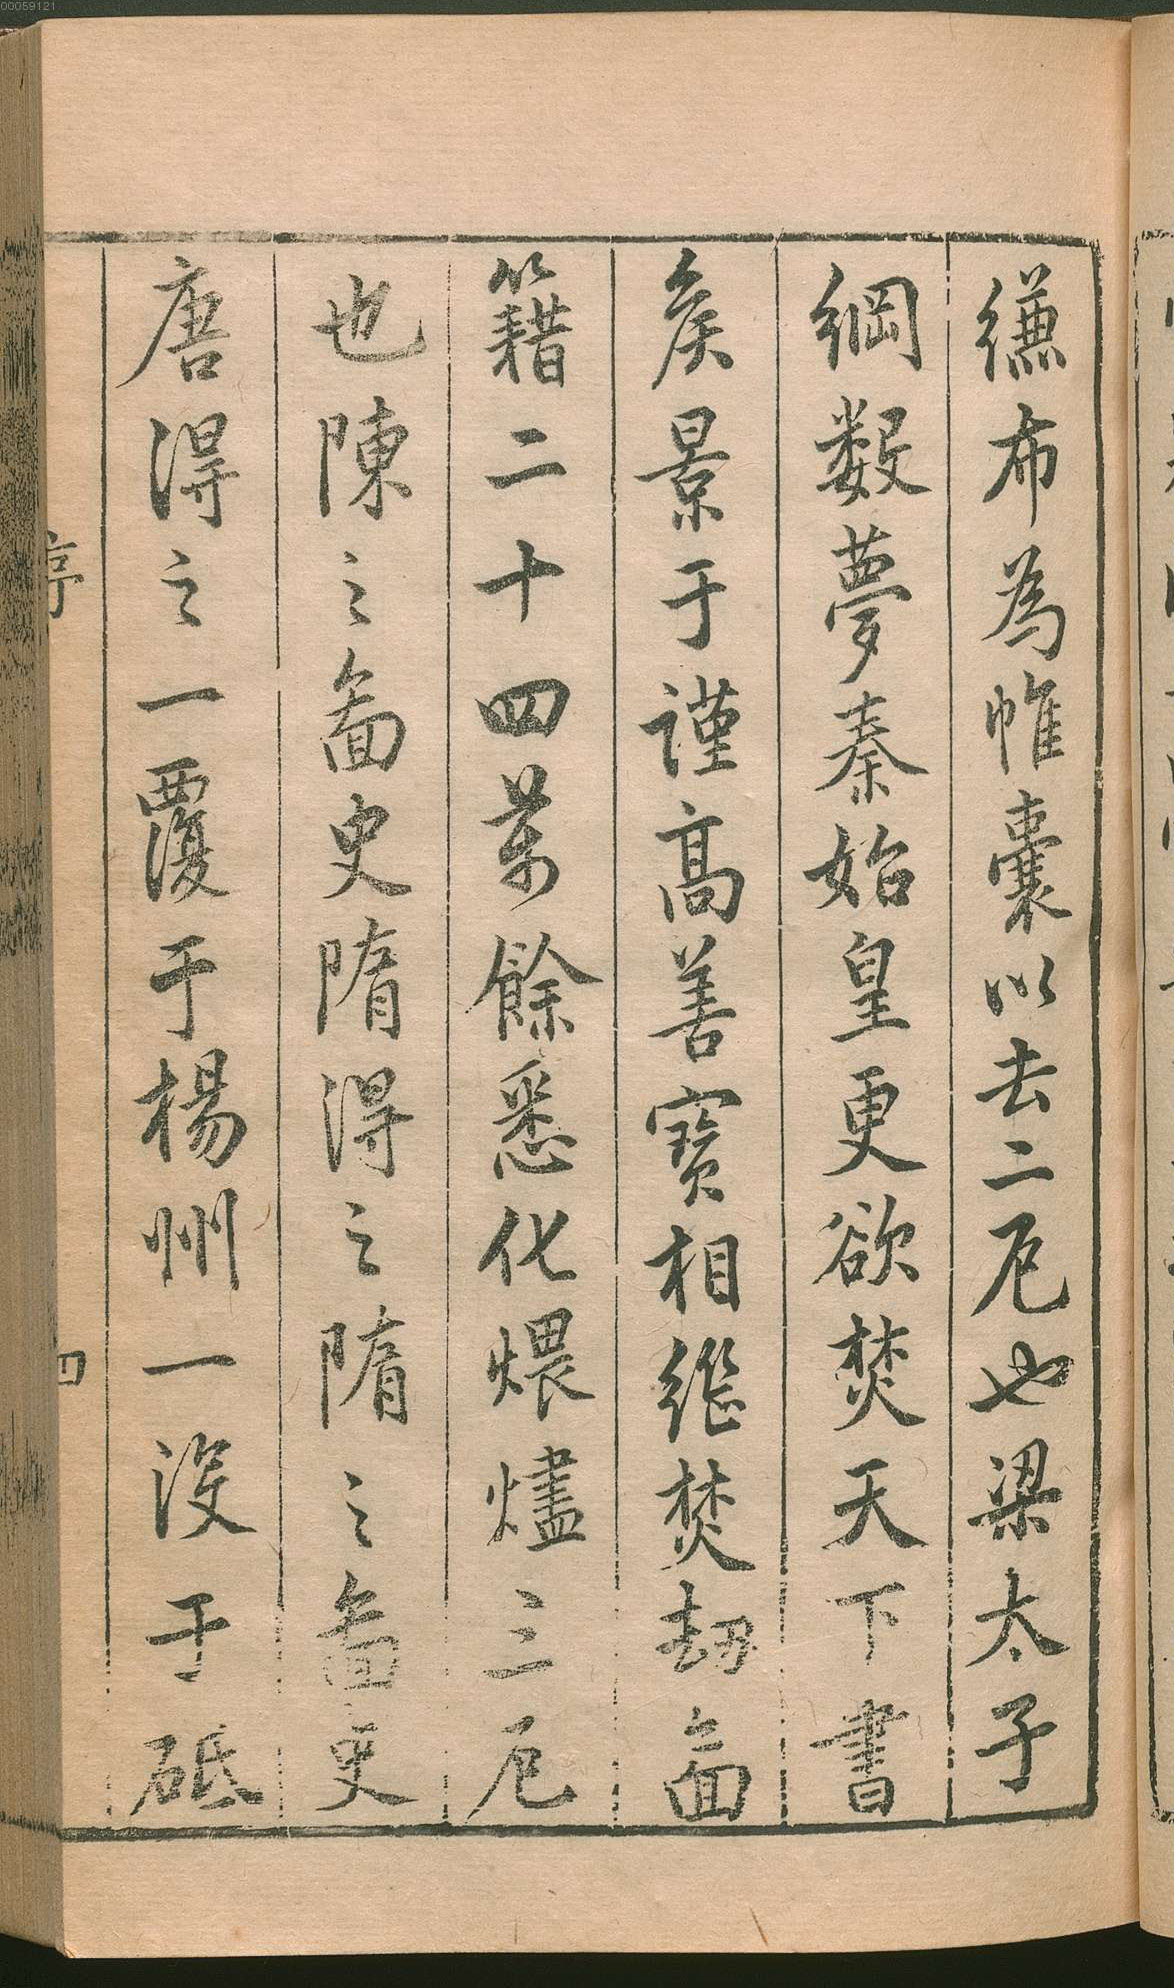 縑布為帷囊以去二厄也梁太子
綱数夢秦始皇更欲焚天下書
矦景于謹高善寶相継焚劫啚
籍二十四萬餘悉化煨燼三厄
也陳之啚史隋得之隋之啚史
唐得之一覆于楊州一没于砥
序
四
00059121